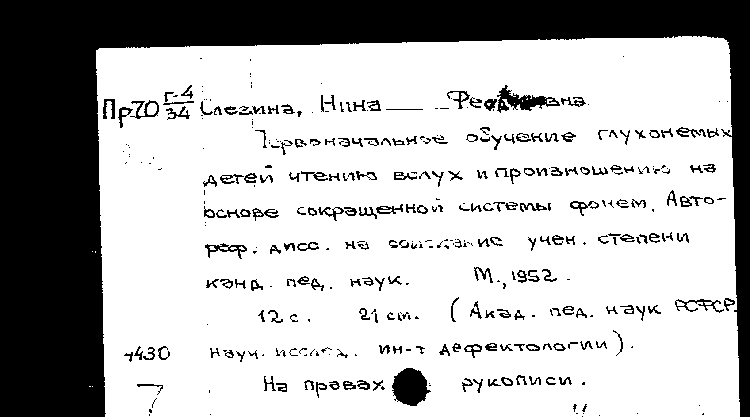 Пр70 Г-4/34 Слезина, Нина
Первоначальное обучение глухонемых
детей чтению вслух и произношению на
основе сокращенной системы фонем. Авто-
реф. дисс. на соискание учен. степени
канд. пед. наук. М., 1952.
12 с. 21 см. (Акад. пед. наук РСФСР.
науч. исслед. ин-т дефектологии).
На правах рукописи.